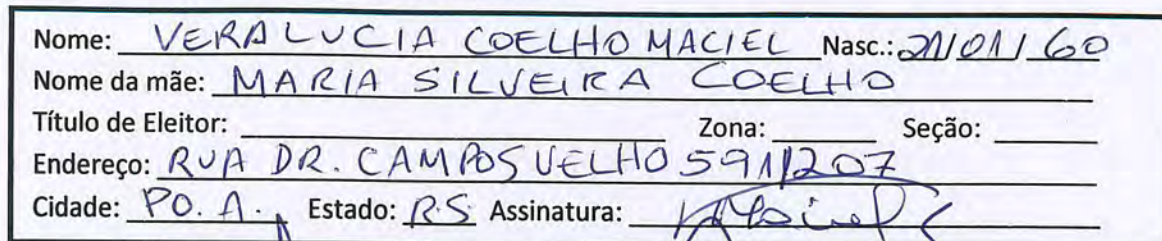 Nome: VERA LUCIA COELHO MACIEL Nasc.: 21/01/60
Nome da mãe: MARIA SILVEIRA COELHO
Título de Eleitor: Zona: Seção:
Endereço: RUA DR. CAMPOS VELHO 591/207
Cidade: PO. A. Estado: R.S. Assinatura: Maciel